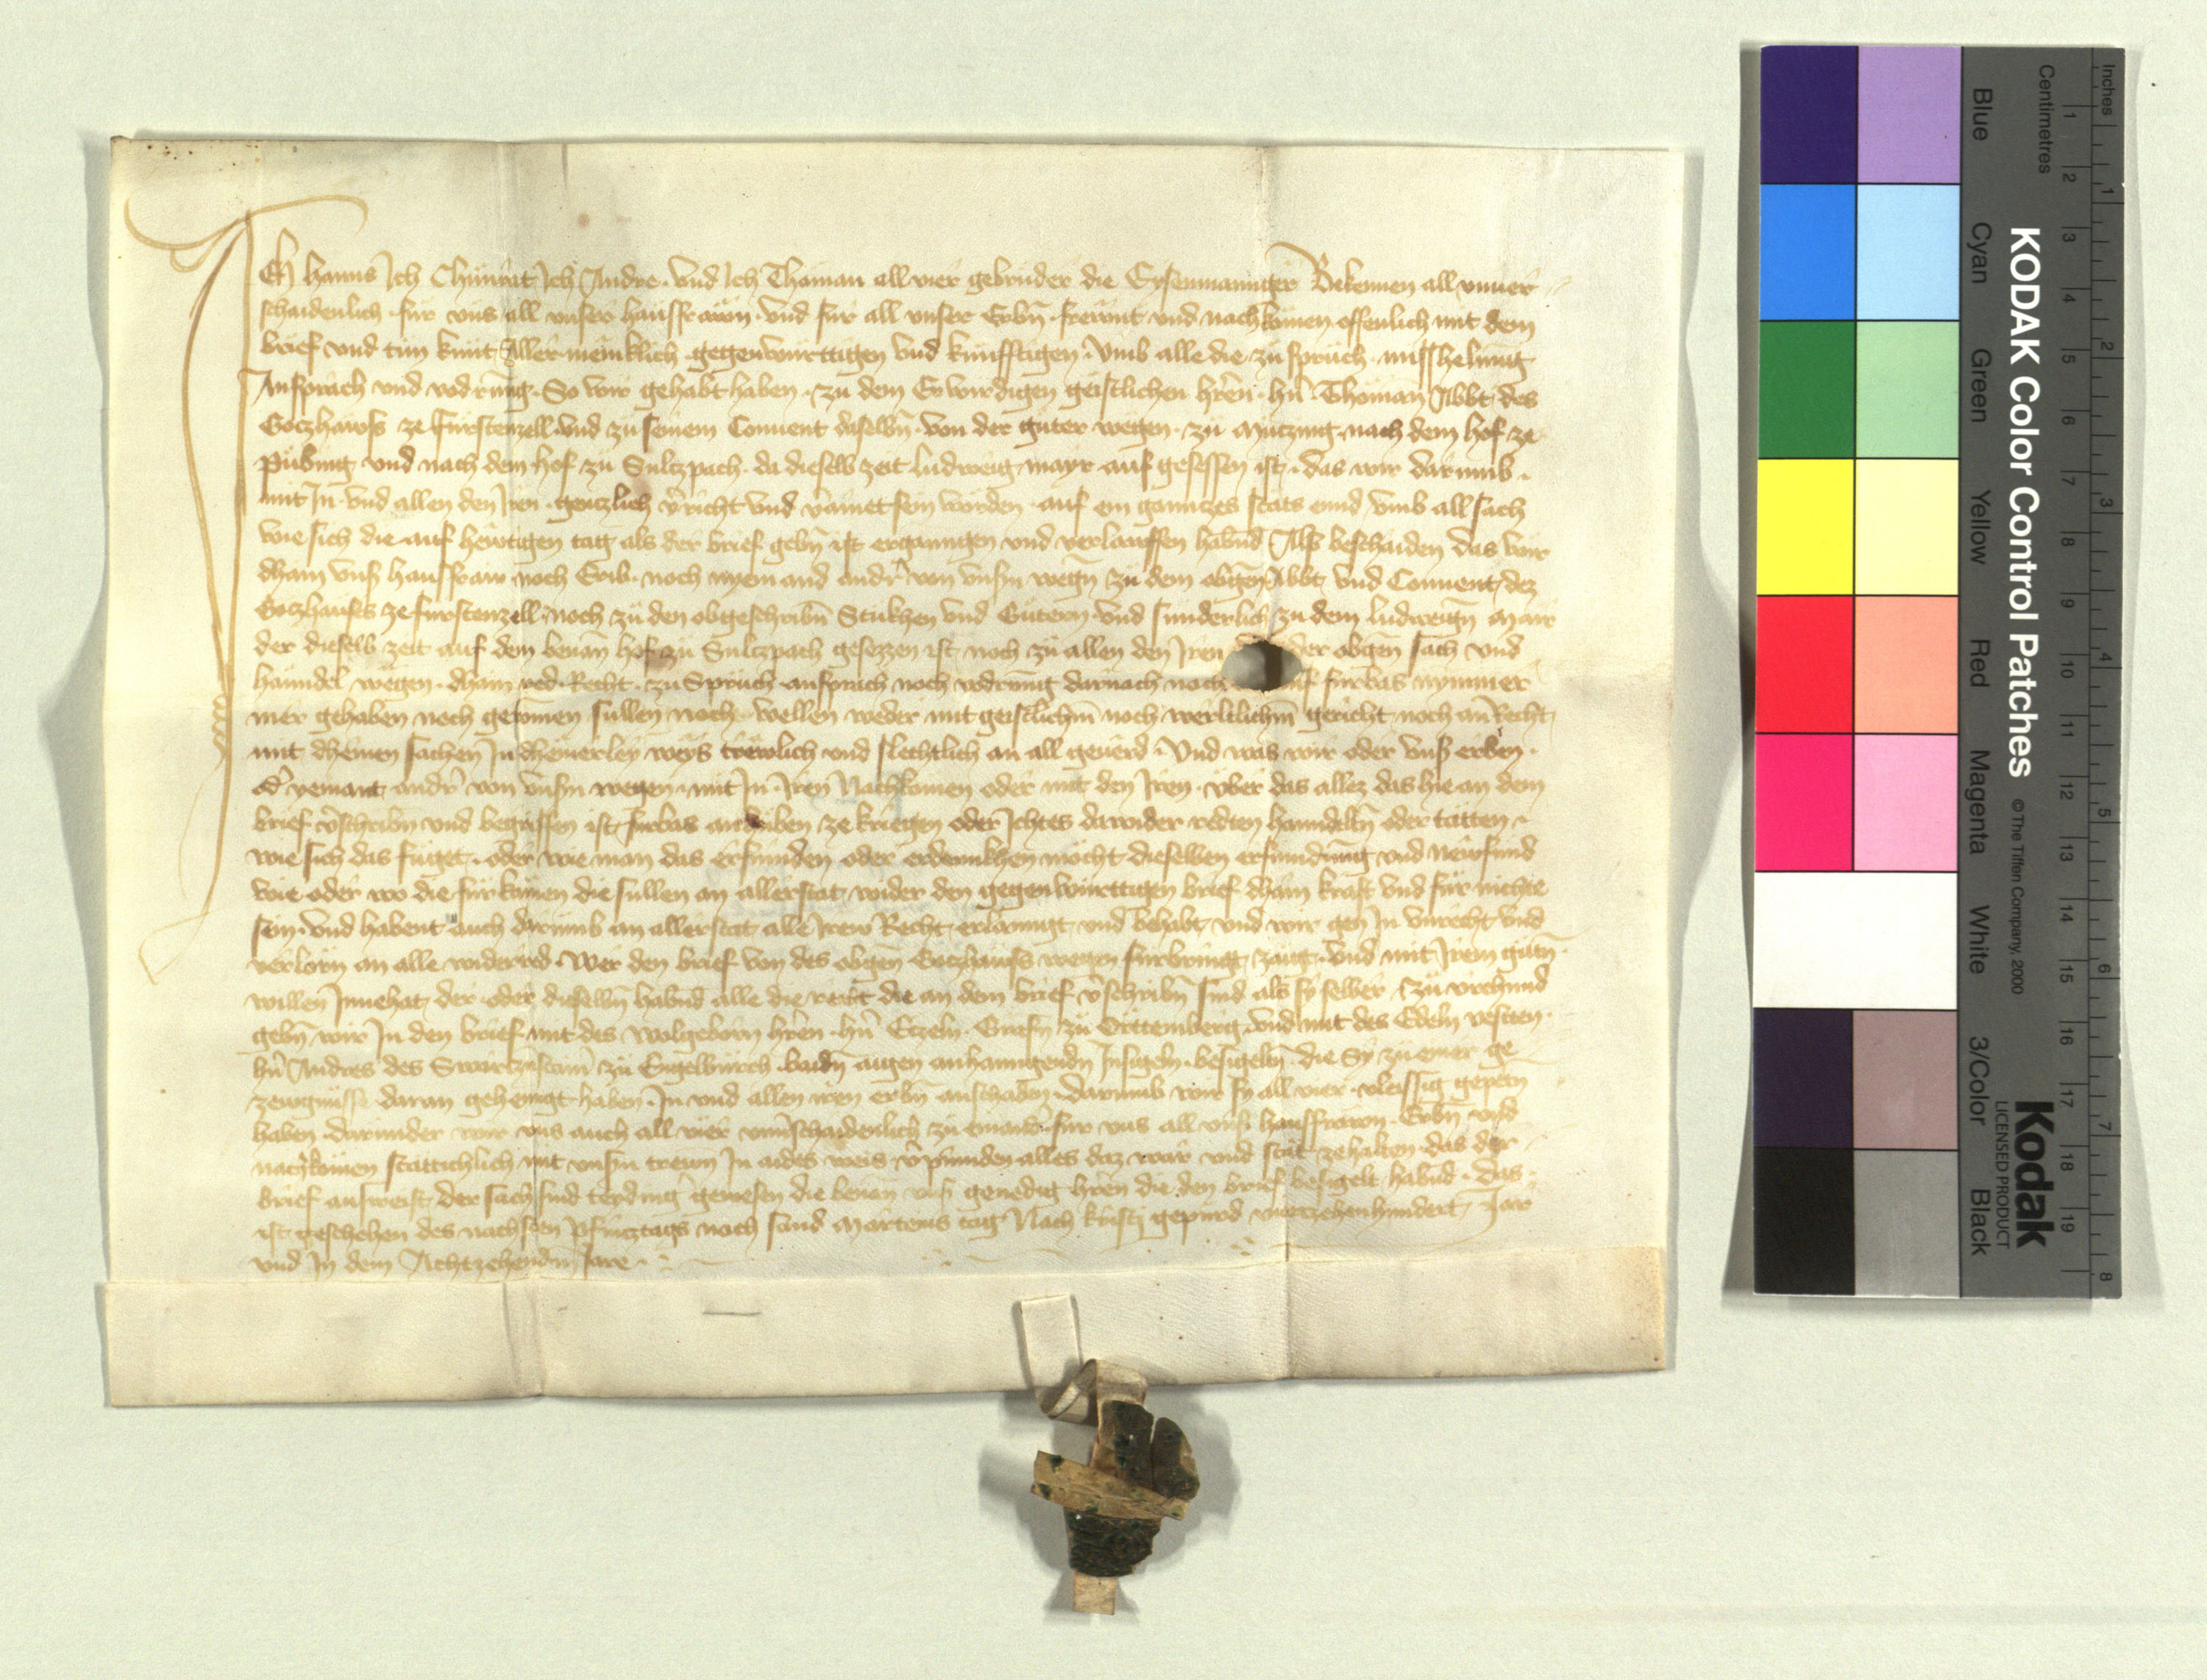 Ich Hanns Ich Chunrat Ich Andre und Ich Thoman all vier gebrüder die Eysenmannger Bekennen all unuer
schaidenlich für uns all unser hausfrawn und für all unser Erbn frewnt und nachkömen offenlich mit dem
brief und tun kunt Aller meniklich gegenwürttigen und künfftigen Umb alle die zu sprüch misshelung
Ansprach und vodrung So wir gehabt haben zu dem Erwirdigen geistlichen hren hn Thoman Abbt des
Goczhawss ze Fürstenzell und zu seinem Conuent daselbn von der güter wegen zu Müczing nach dem hof ze
Pübing und nach dem hof zu Sulczpach da dieselb zeit ludweig mayr auf gesessen ist das wir darumb
mit In und allen den Iren genczlich vricht und vaint sein worden auf ein ganntzes stäts ennd umb all sach
wie sich die auf hewtigen tag als der brief gebn ist ergangen und verlauffen habnd Also beschaiden das wir
dhain unß hausfraw noch Erib noch nyemand andr von unsn wegn zu dem obgen Abbt und Conuent dez
Goczhauses ze fürstenzell noch zu den obgeschribn Stukhen und Gütern und sunderlich zu dem ludweign Mair
der dieselb zeit auf dem benan hof zu Sulczpach gesezzen ist noch zu allen den Iren der obgen sach und
hanndel wegen dhain red Recht zu Spruch ansprach noch vodrung darnach noch fürbas nymmer
mer gehaben noch gewinen sullen noch wellen weder mit geistlichm noch werltlichm gericht noch an Recht
mit dheinen sachen In dheinerley weys trewlich und slechtlich an all geuerd Und was wir oder unß erben
od yemant andr von unsn wegen mit In Iren Nachkömen oder mit den Iren über das allez das hie an dem
brief vschribn und begriffen ist fürbas anhuben ze kriegen oder Ichtes dawider redten hanndeltn oder tätten
wie sich das füget oder wie man das erfunden oder erdennkhen möcht dieselben erfundung und newfünd
wie oder wo die fürkömen die sullen an aller stat wider den gegenwürttigen brief dhain kraft und für nichte
sein und habent auch darumb an aller stat alle Irew Recht erlanngt und behabt und wir gen In unrecht und
verlorn an alle widerred Wer den brief von des obgen Goczhauss wegen fürbringt zaigt und mit Irem gutn
willen Innehat der oder dieselbn habnd alle die recht die an dem brief vschribn sind als sy selber Zu urchund
gebn wir In den brief mit des wolgeborn hren hn Eczeln Grafn zu Orttemberg und mit des Edeln vesten
hn Andres des Swarczinstain zu Engelburch baidn aigen anhanngendn Insigeln besigeltn die Sy zu einer ge
zewgnüsse daran gehenngt haben In und allen iren erbn an schaden Darumb wir sy all vier vleissig gepetn
haben darunder wir uns auch all vier unuschaidenlich zu einand für uns all unß hausfrawn Erbn und
nachkömen stättichlich mit unsn trewn In aides weis vpinnden alles daz war und stät zehalten das der
brief ausweist der sach sind teyding gewesen die benan unß genedig hren die den brief besigelt habnd Das
ist geschehen des nachsten Pfincztags nach sand Marteins tag Nach kristi gepurd vierzehenhundert Jar
und In dem Achtzehendm Jare
KODAK Color Control Patches
© The Tiffen Company, 2000
Kodak
LICENSED PRODUCT
Inches
1 2 3 4 5 6 7 8
Centimetres
1 2 3 4 5 6 7 8 9 10 11 12 13 14 15 16 17 18 19
Blue
Cyan
Green
Yellow
Red
Magenta
White
3/Color
Black